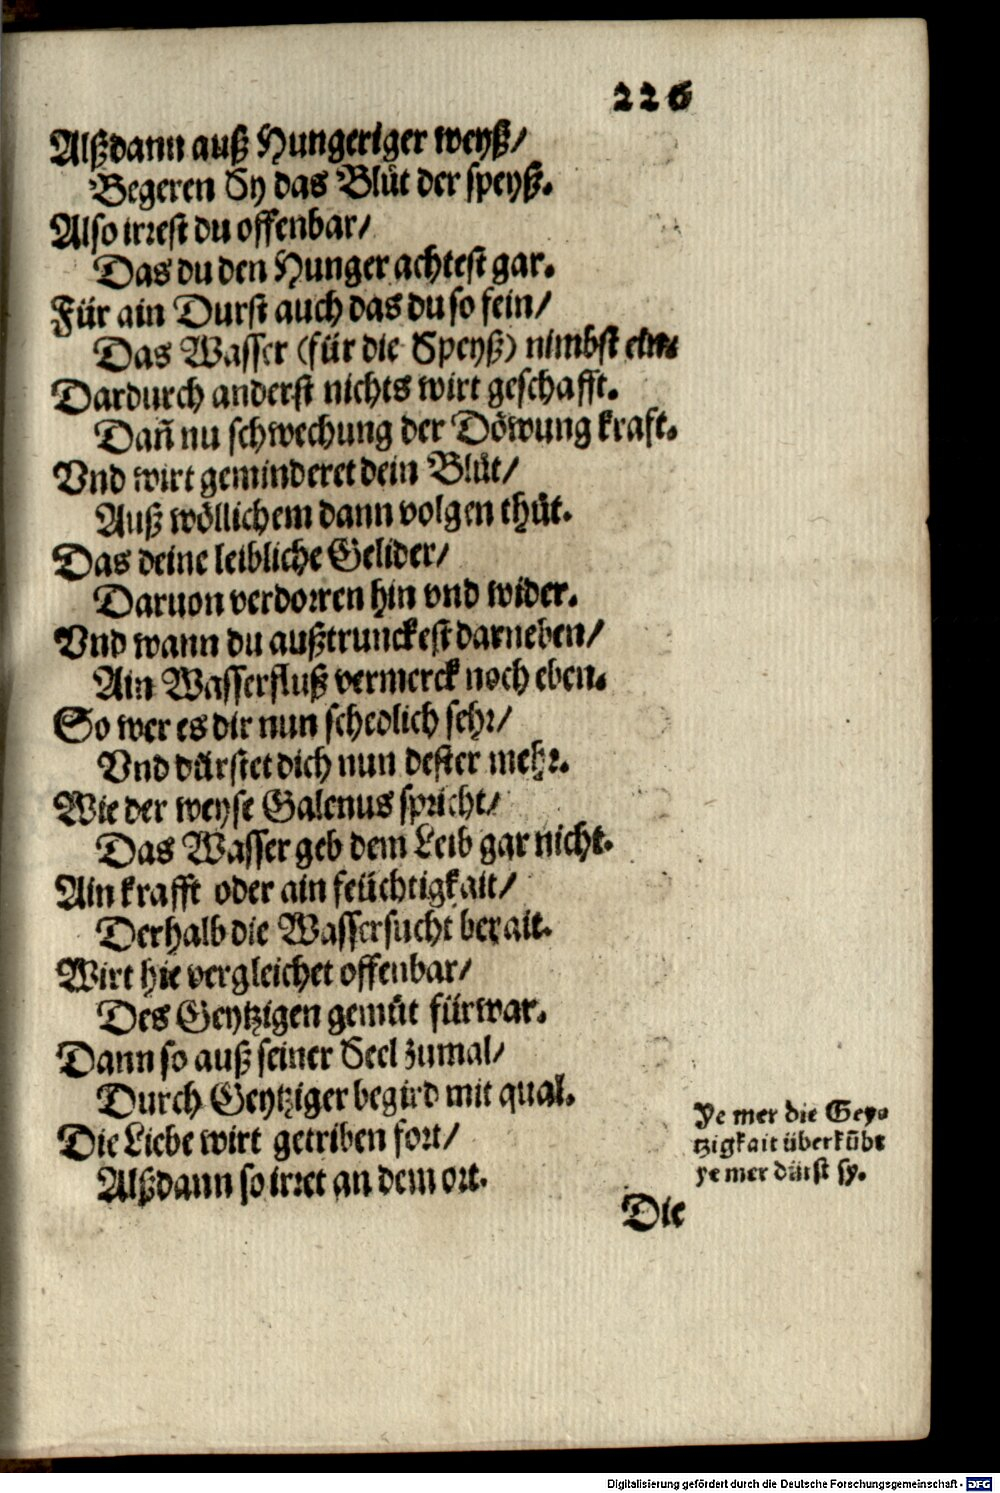 226
Alßdann auß Hungeriger weyß/
Begeren Sy das Blůt der speyß.
Also irrest du offenbar/
Das du den Hunger achtest gar.
Für ain Durst auch das du so fein/
Das Wasser (für die Speyß) nimbst ein.
Dardurch anderst nichts wirt geschafft.
Dañ nu schwechung der Döwung kraft.
Vnd wirt geminderet dein Blůt/
Auß wöllichem dann volgen thůt.
Das deine leibliche Gelider/
Daruon verdorren hin vnd wider.
Vnd wann du außtrunckest darneben/
Ain Wasserfluß vermerck noch eben.
So wer es dir nun schedlich sehr/
Vnd dürstet dich nun dester mehr.
Wie der weyse Galenus spricht/
Das Wasser geb dem Leib gar nicht.
Ain krafft oder ain feüchtigkait/
Derhalb die Wassersucht berait.
Wirt hie vergleichet offenbar/
Des Geytzigen gemüt fürwar.
Dann so auß seiner Seel zumal/
Durch Geytziger begird mit qual.
Die Liebe wirt getriben fort/
Alßdann so irret an dem ort.
Ye mer die Gey-
tzigkait überkübt
ye mer dürst sy.
Die
Digitalisierung gefördert durch die Deutsche Forschungsgemeinschaft - DFG